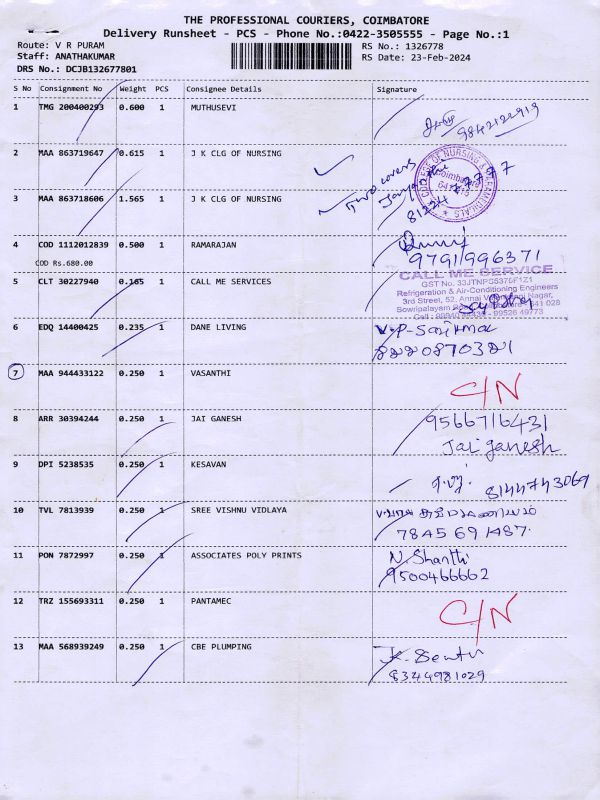 THE PROFESSIONAL COURIERS, COIMBATORE
Delivery Runsheet - PCS - Phone No.:0422-3505555 - Page No.:1
Route: V R PURAM RS No.: 1326778
Staff: ANATHAKUMAR RS Date: 23-Feb-2024
DRS No.: DCJB132677801
S No Consignment No Weight PCS Consignee Details Signature
1 TMG 200400293 0.600 1 MUTHUSEVI
9842122913
2 MAA 863719647 0.615 1 J K CLG OF NURSING
Two covers
3 MAA 863718606 1.565 1 J K CLG OF NURSING
4 COD 1112012839 0.500 1 RAMARAJAN
COD Rs.680.00 9791996371
5 CLT 30227940 0.165 1 CALL ME SERVICES
CALL ME SERVICE
GST No. 33JTNPS5376F1Z1
Refrigeration & Air-Conditioning Engineers
3rd Street, 52, Annai Nagar,
6 EDQ 14400425 0.235 1 DANE LIVING
8220870321
7 MAA 944433122 0.250 1 VASANTHI C/N
8 ARR 30394244 0.250 1 JAI GANESH 9566716431
Jai ganesh
9 DPI 5238535 0.250 1 KESAVAN 8144743069
10 TVL 7813939 0.250 1 SREE VISHNU VIDLAYA
7845691487
11 PON 7872997 0.250 1 ASSOCIATES POLY PRINTS N. Shanthi
9500466662
12 TRZ 155693311 0.250 1 PANTAMEC C/N
13 MAA 568939249 0.250 1 CBE PLUMPING
8344981029